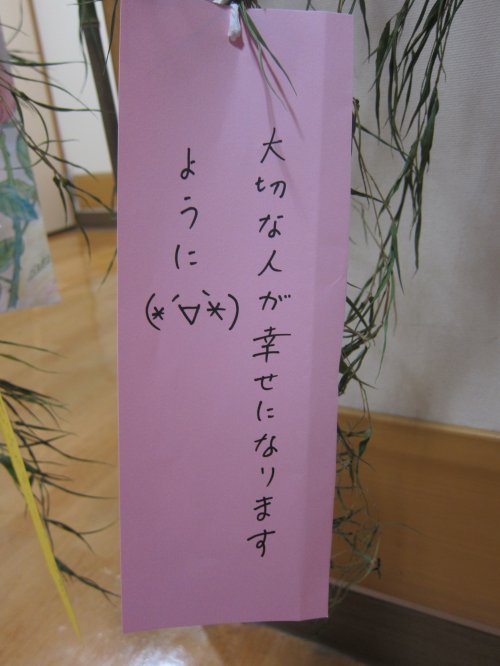 大切な人が幸せになります
ように
(*´∀`*)